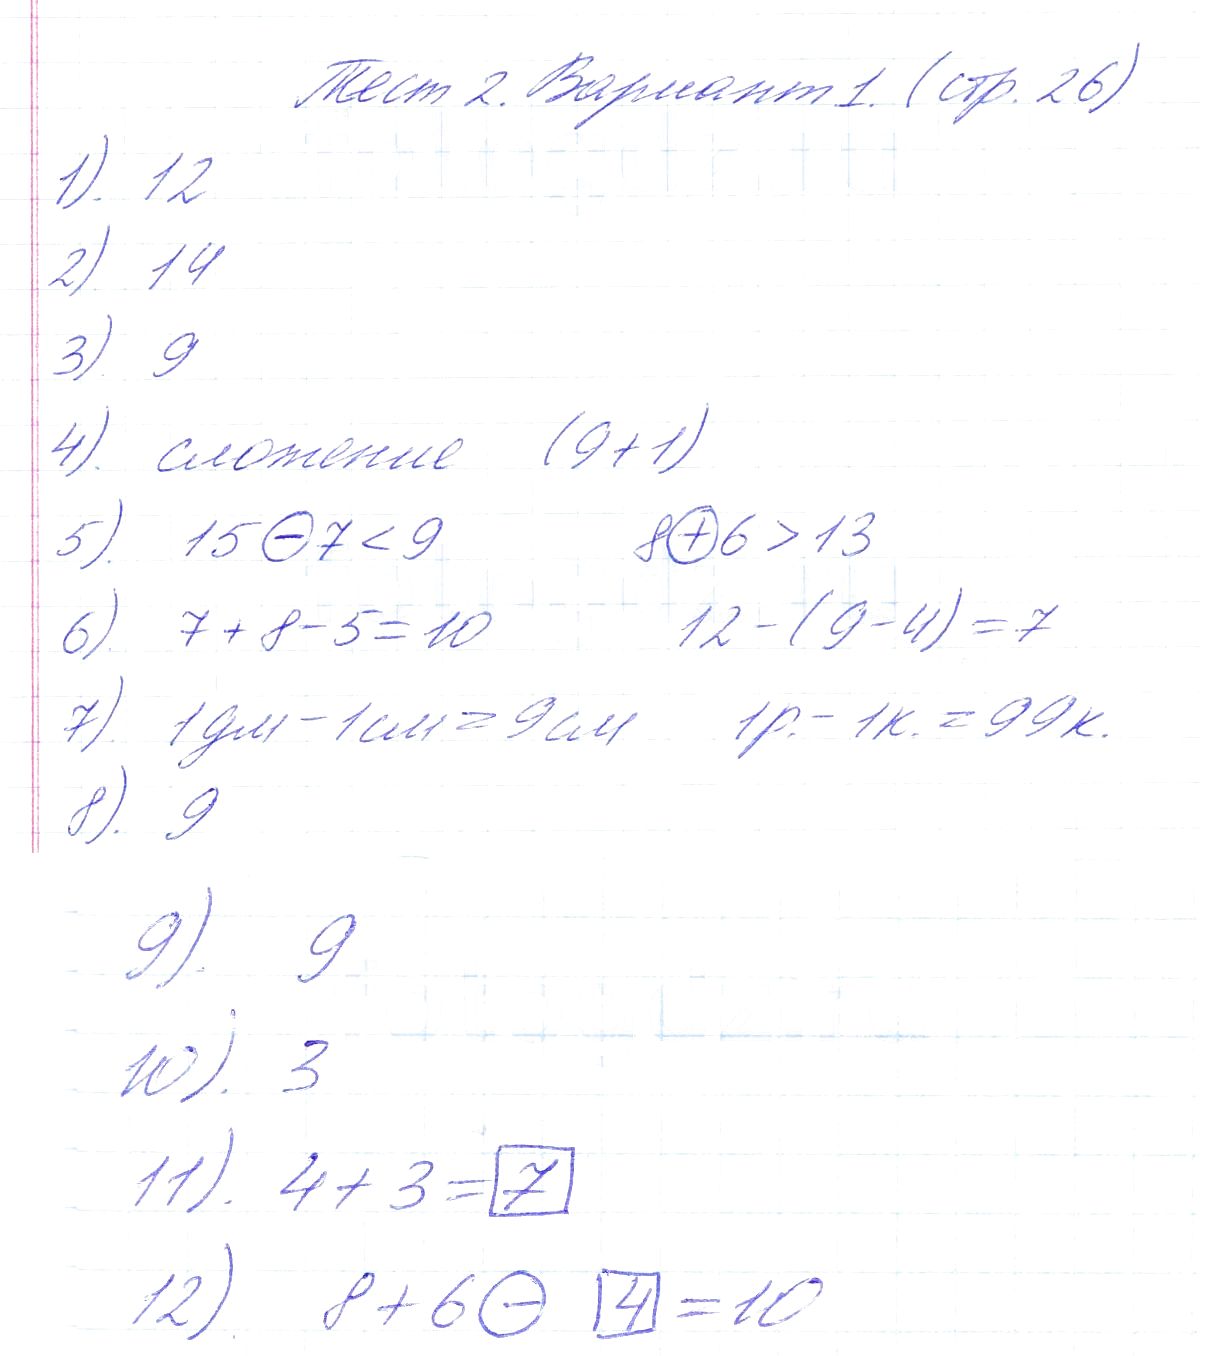 Тест 2. Вариант 1. (стр. 26)
1). 12
2) 14
3) 9
4). сложение (9+1)
5). 15 - 7 < 9 8 + 6 > 13
6). 7 + 8 - 5 = 10 12 - (9 - 4) = 7
7). 1дм - 1см = 9см 1р. - 1к. = 99к.
8). 9
9). 9
10). 3
11). 4 + 3 = 7
12) 8 + 6 - 4 = 10